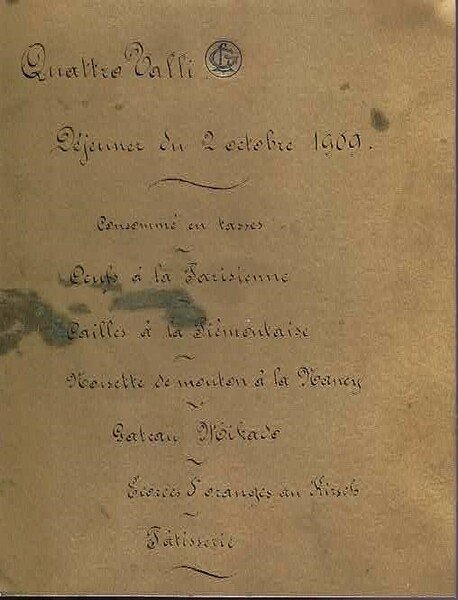 Quattro Valli
Déjeuner du 2 octobre 1909.
Consommé en tasses
Oeufs à la Parisienne
Cailles à la Piémontaise
Noisette de mouton à la Nancy
Gateau Mikado
Ecorces d'oranges au Kirsch
Pâtisserie